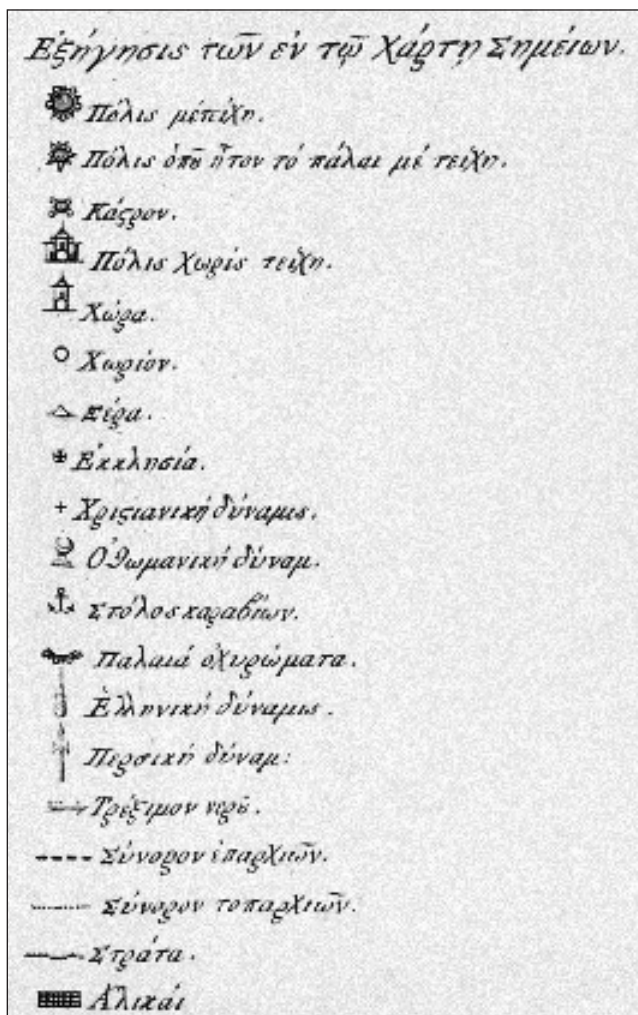 Ἐξήγησις τῶν ἐν τῷ Χάρτῃ Σημείων.
Πόλις μέ τείχη.
Πόλις ὁπȣ͂ ἦτον τό πάλαι μέ τείχη.
Κάϛρον.
Πόλις χωρίς τείχη.
Χώρα.
Χωρίον.
Ἐκκλησία.
Χριϛιανική δύναμις.
Ὀθωμανική δύναμ.
Στόλος καραβίων.
Παλαιά ὀχυρώματα.
Ἑλληνική δύναμις.
Περσική δύναμ:
Τρέξιμον νερȣ͂.
Σύνορον ἐπαρχιῶν.
Σύνορον τοπαρχιῶν.
Στράτα.
Ἁλικαί